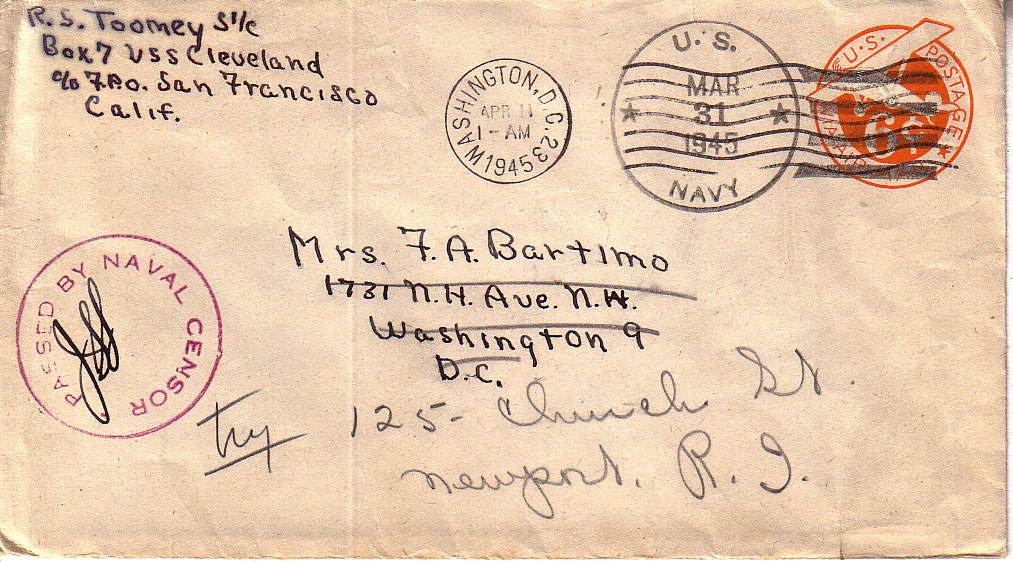 R. S. Toomey S1/c
Box 7 USS Cleveland
c/o F.P.O. San Francisco
Calif.
WASHINGTON, D.C. 23
APR 11
1 - AM
1945
U. S.
MAR
31
1945
NAVY
U.S. POSTAGE
6¢
VIA AIR MAIL
PASSED BY NAVAL CENSOR
Mrs. F. A. Bartimo
1731 N.H. Ave. N.W.
Washington 9
D.C.
Try 125 - Church St.
Newport. R. I.